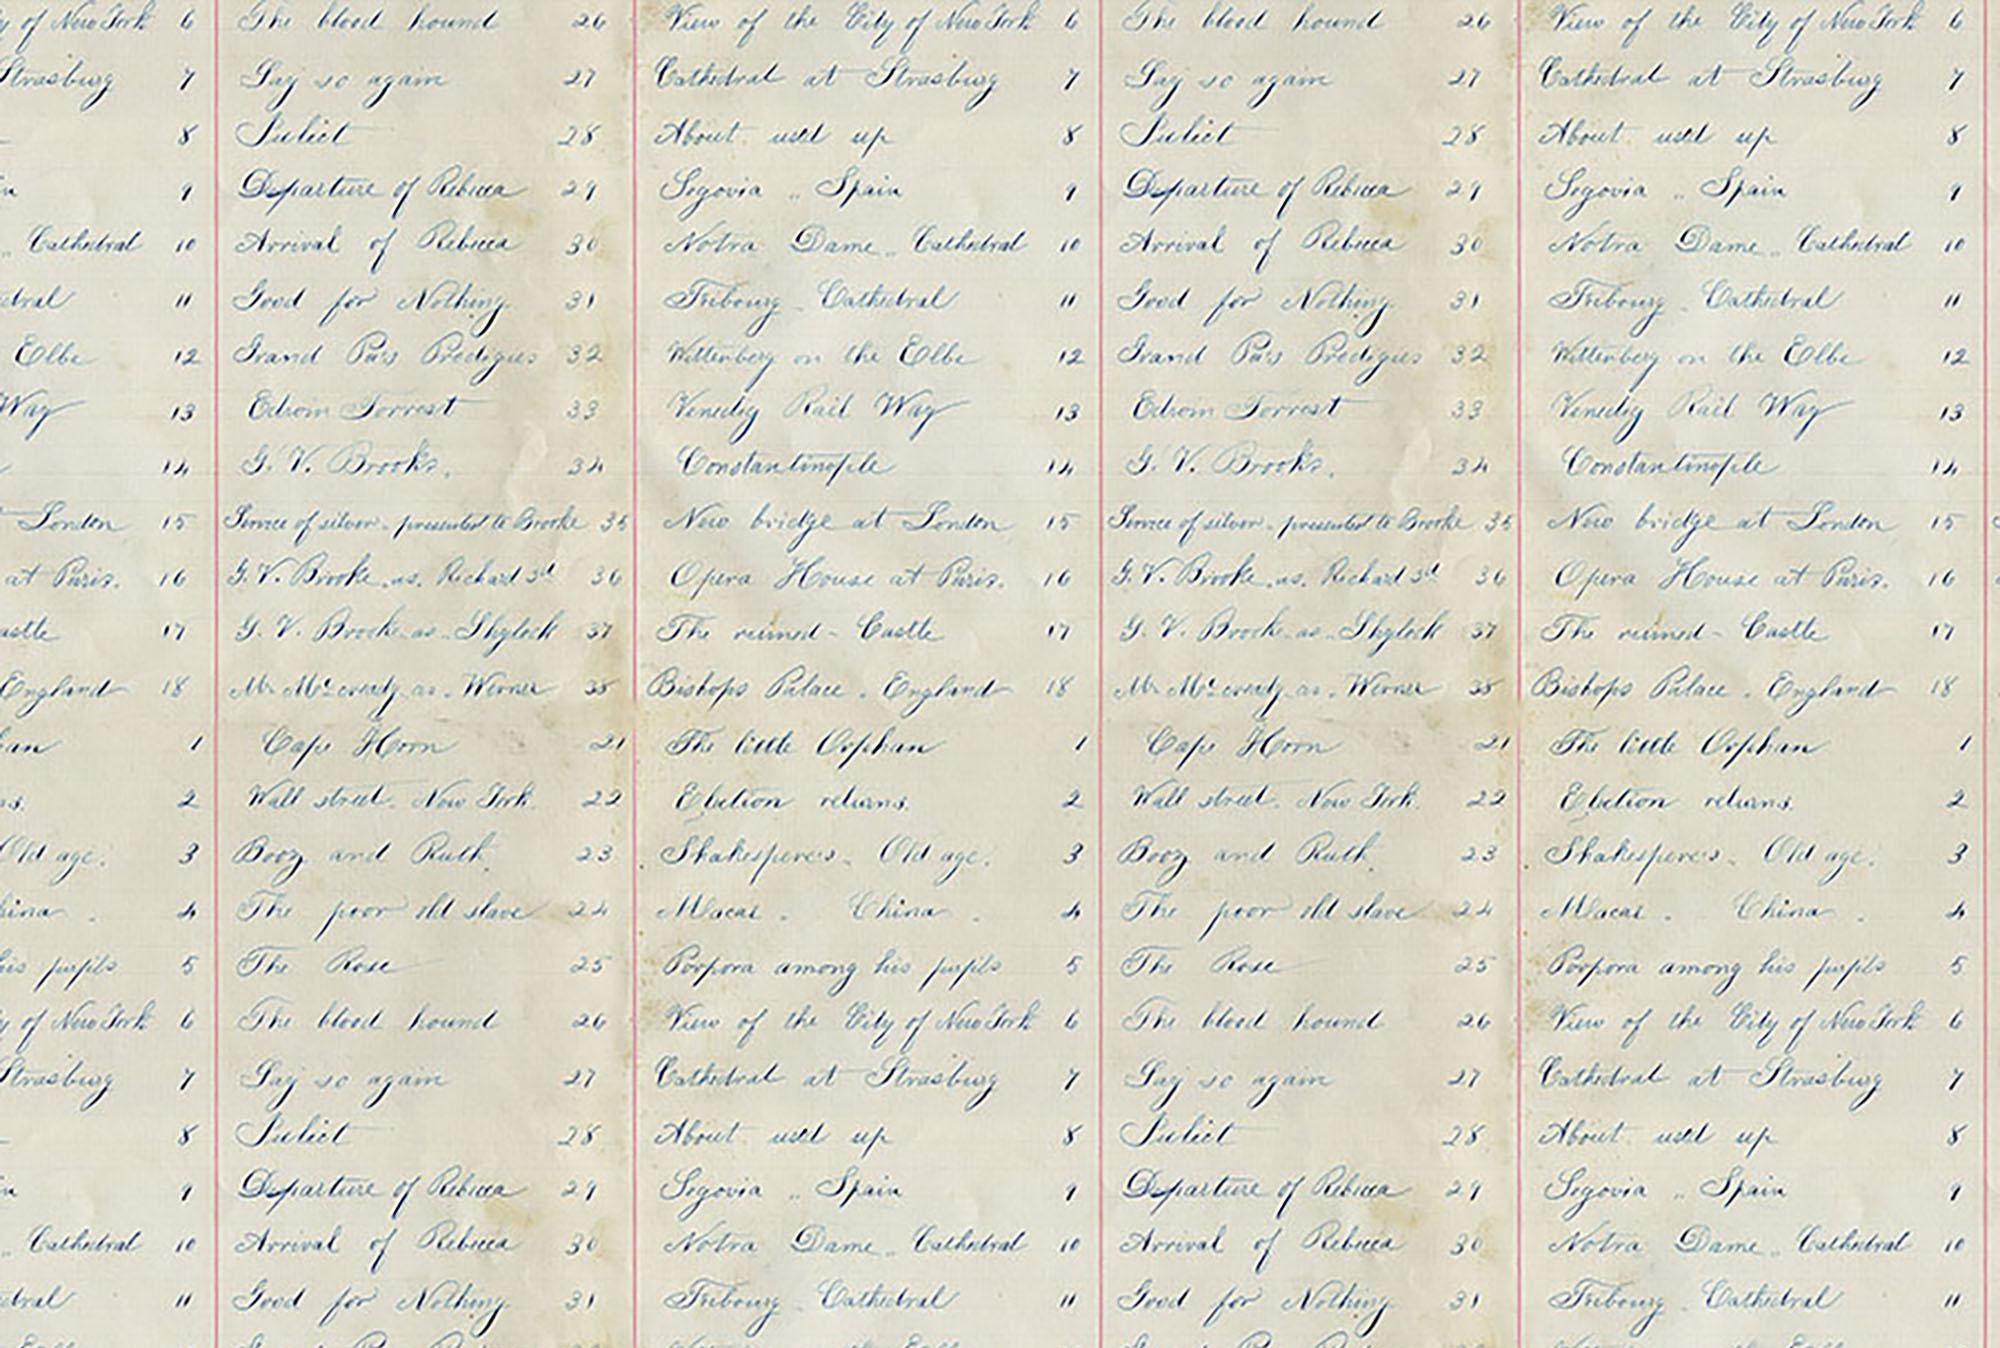 y of New York 6 The blood hound 26 View of the City of New York 6 The blood hound 26 View of the City of New York 6
Strasburg 7 Say so again 27 Cathedral at Strasburg 7 Say so again 27 Cathedral at Strasburg 7
8 Juliet 28 About used up 8 Juliet 28 About used up 8
n 9 Departure of Rebecca 29 Segovia .. Spain 9 Departure of Rebecca 29 Segovia .. Spain 9
.. Cathedral 10 Arrival of Rebecca 30 Notra Dame .. Cathedral 10 Arrival of Rebecca 30 Notra Dame .. Cathedral 10
edral 11 Good for Nothing 31 Fribourg - Cathedral 11 Good for Nothing 31 Fribourg - Cathedral 11
Elbe 12 Grand Pa's 32 Wittenberg on the Elbe 12 Grand Pa's 32 Wittenberg on the Elbe 12
Way 13 Edwin Forrest 33 Venedig Rail Way 13 Edwin Forrest 33 Venedig Rail Way 13
14 G. V. Brooks. 34 Constantinople 14 G. V. Brooks. 34 Constantinople 14
t London 15 Service of silver - presented to Brooke 35 New bridge at London 15 Service of silver - presented to Brooke 35 New bridge at London 15
at Paris. 16 G. V. Brooke .as. Richard 3d 36 Opera House at Paris. 16 G. V. Brooke .as. Richard 3d 36 Opera House at Paris. 16
astle 17 G. V. Brooke as - Shylock 37 The ruined - Castle 17 G. V. Brooke as - Shylock 37 The ruined - Castle 17
England 18 Mr as . Werner 38 Bishops Palace . England 18 Mr as . Werner 38 Bishops Palace . England 18
han 1 Cape Horn 21 The little Orphan 1 Cape Horn 21 The little Orphan 1
ns. 2 Wall street. New York. 22 Election returns. 2 Wall street. New York. 22 Election returns. 2
Old age. 3 Booz and Ruth. 23 Shakesperes - Old age. 3 Booz and Ruth. 23 Shakesperes - Old age. 3
hina . 4 The poor old slave 24 Macao . China . 4 The poor old slave 24 Macao . China . 4
his pupils 5 The Rose 25 Porpora among his pupils 5 The Rose 25 Porpora among his pupils 5
y of New York 6 The blood hound 26 View of the City of New York 6 The blood hound 26 View of the City of New York 6
Strasburg 7 Say so again 27 Cathedral at Strasburg 7 Say so again 27 Cathedral at Strasburg 7
8 Juliet 28 About used up 8 Juliet 28 About used up 8
n 9 Departure of Rebecca 29 Segovia .. Spain 9 Departure of Rebecca 29 Segovia .. Spain 9
.. Cathedral 10 Arrival of Rebecca 30 Notra Dame .. Cathedral 10 Arrival of Rebecca 30 Notra Dame .. Cathedral 10
edral 11 Good for Nothing 31 Fribourg - Cathedral 11 Good for Nothing 31 Fribourg - Cathedral 11